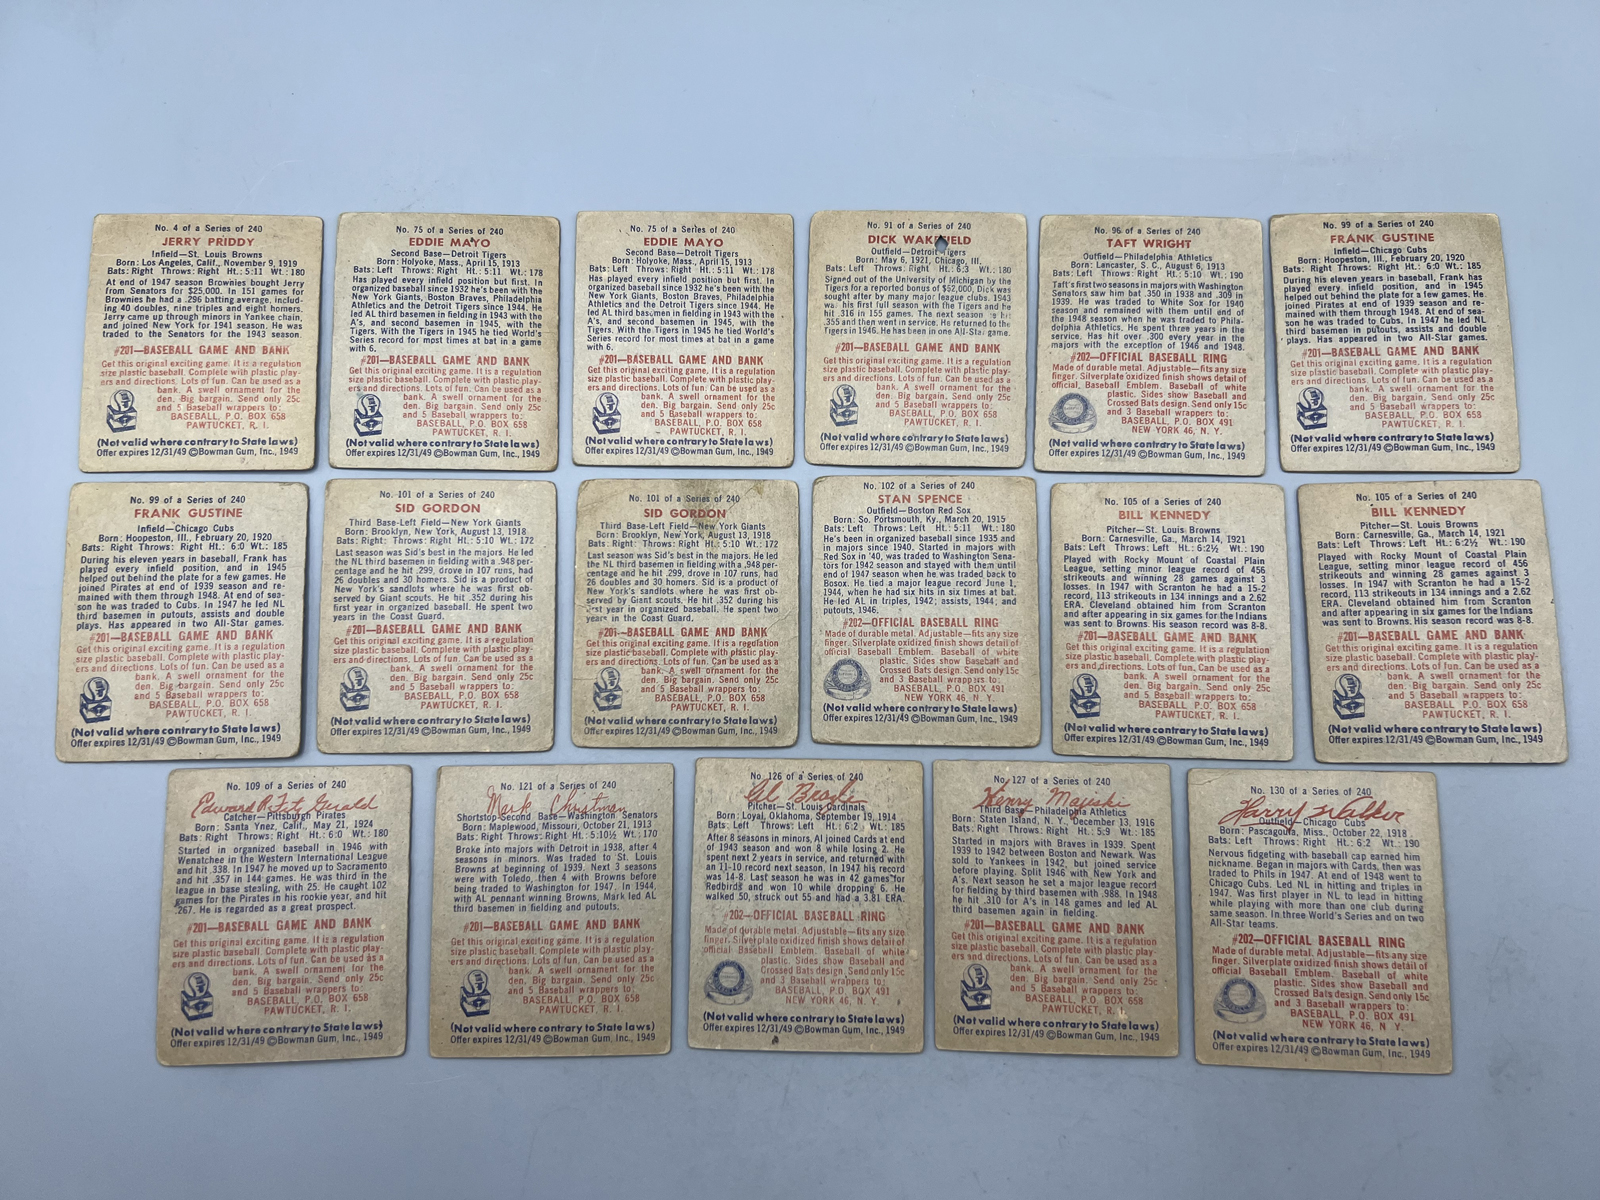 No. 4 of a Series of 240
JERRY PRIDDY
Infield—St. Louis Browns
Born: Los Angeles, Calif., November 9, 1919
Bats: Right Throws: Right Ht.: 5:11 Wt.: 180
At end of 1947 season Brownies bought Jerry
from Senators for $25,000. In 151 games for
Brownies he had a .296 batting average, includ-
ing 40 doubles, nine triples and eight homers.
Jerry came up through minors in Yankee chain,
and joined New York for 1941 season. He was
traded to the Senators for the 1943 season.
#201—BASEBALL GAME AND BANK
Get this original exciting game. It is a regulation
size plastic baseball. Complete with plastic play-
ers and directions. Lots of fun. Can be used as a
bank. A swell ornament for the
den. Big bargain. Send only 25c
and 5 Baseball wrappers to:
BASEBALL, P.O. BOX 658
PAWTUCKET, R. I.
(Not valid where contrary to State laws)
Offer expires 12/31/49 ©Bowman Gum, Inc., 1949
No. 75 of a Series of 240
EDDIE MAYO
Second Base—Detroit Tigers
Born: Holyoke, Mass., April 15, 1913
Bats: Left Throws: Right Ht.: 5:11 Wt.: 178
Has played every infield position but first. In
organized baseball since 1932 he's been with the
New York Giants, Boston Braves, Philadelphia
Athletics and the Detroit Tigers since 1944. He
led AL third basemen in fielding in 1943 with the
A's, and second basemen in 1945, with the
Tigers. With the Tigers in 1945 he tied World's
Series record for most times at bat in a game
with 6.
#201—BASEBALL GAME AND BANK
Get this original exciting game. It is a regulation
size plastic baseball. Complete with plastic play-
ers and directions. Lots of fun. Can be used as a
bank. A swell ornament for the
den. Big bargain. Send only 25c
and 5 Baseball wrappers to:
BASEBALL, P.O. BOX 658
PAWTUCKET, R. I.
(Not valid where contrary to State laws)
Offer expires 12/31/49 ©Bowman Gum, Inc., 1949
No. 75 of a Series of 240
EDDIE MAYO
Second Base—Detroit Tigers
Born: Holyoke, Mass., April 15, 1913
Bats: Left Throws: Right Ht.: 5:11 Wt.: 178
Has played every infield position but first. In
organized baseball since 1932 he's been with the
New York Giants, Boston Braves, Philadelphia
Athletics and the Detroit Tigers since 1944. He
led AL third basemen in fielding in 1943 with the
A's, and second basemen in 1945, with the
Tigers. With the Tigers in 1945 he tied World's
Series record for most times at bat in a game
with 6.
#201—BASEBALL GAME AND BANK
Get this original exciting game. It is a regulation
size plastic baseball. Complete with plastic play-
ers and directions. Lots of fun. Can be used as a
bank. A swell ornament for the
den. Big bargain. Send only 25c
and 5 Baseball wrappers to:
BASEBALL, P.O. BOX 658
PAWTUCKET, R. I.
(Not valid where contrary to State laws)
Offer expires 12/31/49 ©Bowman Gum, Inc., 1949
No. 91 of a Series of 240
DICK WAKEFIELD
Outfield—Detroit Tigers
Born: May 6, 1921, Chicago, Ill.
Bats: Left Throws: Right Ht.: 6:3 Wt.: 180
Signed out of the University of Michigan by the
Tigers for a reported bonus of $52,000, Dick was
sought after by many major league clubs. 1943
was his first full season with the Tigers and he
hit .316 in 155 games. The next season he hit
.355 and then went in service. He returned to the
Tigers in 1946. He has been in one All-Star game.
#201—BASEBALL GAME AND BANK
Get this original exciting game. It is a regulation
size plastic baseball. Complete with plastic play-
ers and directions. Lots of fun. Can be used as a
bank. A swell ornament for the
den. Big bargain. Send only 25c
and 5 Baseball wrappers to:
BASEBALL, P.O. BOX 658
PAWTUCKET, R. I.
(Not valid where contrary to State laws)
Offer expires 12/31/49 ©Bowman Gum, Inc., 1949
No. 96 of a Series of 240
TAFT WRIGHT
Outfield—Philadelphia Athletics
Born: Lancaster, S. C., August 6, 1913
Bats: Left Throws: Right Ht.: 5:10 Wt.: 190
Taft's first two seasons in majors with Washington
Senators saw him bat .350 in 1938 and .309 in
1939. He was traded to White Sox for 1940
season and remained with them until end of
the 1948 season when he was traded to Phila-
delphia Athletics. He spent three years in the
service. Has hit over .300 every year in the
majors with the exception of 1946 and 1948.
#202—OFFICIAL BASEBALL RING
Made of durable metal. Adjustable—fits any size
finger. Silverplate oxidized finish shows detail of
official Baseball Emblem. Baseball of white
plastic. Sides show Baseball and
Crossed Bats design. Send only 15c
and 3 Baseball wrappers to:
BASEBALL, P.O. BOX 491
NEW YORK 46, N. Y.
(Not valid where contrary to State laws)
Offer expires 12/31/49 ©Bowman Gum, Inc., 1949
No. 99 of a Series of 240
FRANK GUSTINE
Infield—Chicago Cubs
Born: Hoopeston, Ill., February 20, 1920
Bats: Right Throws: Right Ht.: 6:0 Wt.: 185
During his eleven years in baseball, Frank has
played every infield position, and in 1945
helped out behind the plate for a few games. He
joined Pirates at end of 1939 season and re-
mained with them through 1948. At end of sea-
son he was traded to Cubs. In 1947 he led NL
third basemen in putouts, assists and double
plays. Has appeared in two All-Star games.
#201—BASEBALL GAME AND BANK
Get this original exciting game. It is a regulation
size plastic baseball. Complete with plastic play-
ers and directions. Lots of fun. Can be used as a
bank. A swell ornament for the
den. Big bargain. Send only 25c
and 5 Baseball wrappers to:
BASEBALL, P.O. BOX 658
PAWTUCKET, R. I.
(Not valid where contrary to State laws)
Offer expires 12/31/49 ©Bowman Gum, Inc., 1949
No. 99 of a Series of 240
FRANK GUSTINE
Infield—Chicago Cubs
Born: Hoopeston, Ill., February 20, 1920
Bats: Right Throws: Right Ht.: 6:0 Wt.: 185
During his eleven years in baseball, Frank has
played every infield position, and in 1945
helped out behind the plate for a few games. He
joined Pirates at end of 1939 season and re-
mained with them through 1948. At end of sea-
son he was traded to Cubs. In 1947 he led NL
third basemen in putouts, assists and double
plays. Has appeared in two All-Star games.
#201—BASEBALL GAME AND BANK
Get this original exciting game. It is a regulation
size plastic baseball. Complete with plastic play-
ers and directions. Lots of fun. Can be used as a
bank. A swell ornament for the
den. Big bargain. Send only 25c
and 5 Baseball wrappers to:
BASEBALL, P.O. BOX 658
PAWTUCKET, R. I.
(Not valid where contrary to State laws)
Offer expires 12/31/49 ©Bowman Gum, Inc., 1949
No. 101 of a Series of 240
SID GORDON
Third Base-Left Field—New York Giants
Born: Brooklyn, New York, August 13, 1918
Bats: Right Throws: Right Ht.: 5:10 Wt.: 172
Last season was Sid's best in the majors. He led
the NL third basemen in fielding with a .948 per-
centage and he hit .299, drove in 107 runs, had
26 doubles and 30 homers. Sid is a product of
New York's sandlots where he was first ob-
served by Giant scouts. He hit .352 during his
first year in organized baseball. He spent two
years in the Coast Guard.
#201—BASEBALL GAME AND BANK
Get this original exciting game. It is a regulation
size plastic baseball. Complete with plastic play-
ers and directions. Lots of fun. Can be used as a
bank. A swell ornament for the
den. Big bargain. Send only 25c
and 5 Baseball wrappers to:
BASEBALL, P.O. BOX 658
PAWTUCKET, R. I.
(Not valid where contrary to State laws)
Offer expires 12/31/49 ©Bowman Gum, Inc., 1949
No. 101 of a Series of 240
SID GORDON
Third Base-Left Field—New York Giants
Born: Brooklyn, New York, August 13, 1918
Bats: Right Throws: Right Ht.: 5:10 Wt.: 172
Last season was Sid's best in the majors. He led
the NL third basemen in fielding with a .948 per-
centage and he hit .299, drove in 107 runs, had
26 doubles and 30 homers. Sid is a product of
New York's sandlots where he was first ob-
served by Giant scouts. He hit .352 during his
first year in organized baseball. He spent two
years in the Coast Guard.
#201—BASEBALL GAME AND BANK
Get this original exciting game. It is a regulation
size plastic baseball. Complete with plastic play-
ers and directions. Lots of fun. Can be used as a
bank. A swell ornament for the
den. Big bargain. Send only 25c
and 5 Baseball wrappers to:
BASEBALL, P.O. BOX 658
PAWTUCKET, R. I.
(Not valid where contrary to State laws)
Offer expires 12/31/49 ©Bowman Gum, Inc., 1949
No. 102 of a Series of 240
STAN SPENCE
Outfield—Boston Red Sox
Born: So. Portsmouth, Ky., March 20, 1915
Bats: Left Throws: Left Ht.: 5:11 Wt.: 180
He's been in organized baseball since 1935 and
in majors since 1940. Started in majors with
Red Sox in '40, was traded to Washington Sena-
tors for 1942 season and stayed with them until
end of 1947 season when he was traded back to
Bosox. He tied a major league record June 1,
1944, when he had six hits in six times at bat.
He led AL in triples, 1942; assists, 1944; and
putouts, 1946.
#202—OFFICIAL BASEBALL RING
Made of durable metal. Adjustable—fits any size
finger. Silverplate oxidized finish shows detail of
official Baseball Emblem. Baseball of white
plastic. Sides show Baseball and
Crossed Bats design. Send only 15c
and 3 Baseball wrappers to:
BASEBALL, P.O. BOX 491
NEW YORK 46, N. Y.
(Not valid where contrary to State laws)
Offer expires 12/31/49 ©Bowman Gum, Inc., 1949
No. 105 of a Series of 240
BILL KENNEDY
Pitcher—St. Louis Browns
Born: Carnesville, Ga., March 14, 1921
Bats: Left Throws: Left Ht.: 6:2½ Wt.: 190
Played with Rocky Mount of Coastal Plain
League, setting minor league record of 456
strikeouts and winning 28 games against 3
losses. In 1947 with Scranton he had a 15-2
record, 113 strikeouts in 134 innings and a 2.62
ERA. Cleveland obtained him from Scranton
and after appearing in six games for the Indians
was sent to Browns. His season record was 8-8.
#201—BASEBALL GAME AND BANK
Get this original exciting game. It is a regulation
size plastic baseball. Complete with plastic play-
ers and directions. Lots of fun. Can be used as a
bank. A swell ornament for the
den. Big bargain. Send only 25c
and 5 Baseball wrappers to:
BASEBALL, P.O. BOX 658
PAWTUCKET, R. I.
(Not valid where contrary to State laws)
Offer expires 12/31/49 ©Bowman Gum, Inc., 1949
No. 105 of a Series of 240
BILL KENNEDY
Pitcher—St. Louis Browns
Born: Carnesville, Ga., March 14, 1921
Bats: Left Throws: Left Ht.: 6:2½ Wt.: 190
Played with Rocky Mount of Coastal Plain
League, setting minor league record of 456
strikeouts and winning 28 games against 3
losses. In 1947 with Scranton he had a 15-2
record, 113 strikeouts in 134 innings and a 2.62
ERA. Cleveland obtained him from Scranton
and after appearing in six games for the Indians
was sent to Browns. His season record was 8-8.
#201—BASEBALL GAME AND BANK
Get this original exciting game. It is a regulation
size plastic baseball. Complete with plastic play-
ers and directions. Lots of fun. Can be used as a
bank. A swell ornament for the
den. Big bargain. Send only 25c
and 5 Baseball wrappers to:
BASEBALL, P.O. BOX 658
PAWTUCKET, R. I.
(Not valid where contrary to State laws)
Offer expires 12/31/49 ©Bowman Gum, Inc., 1949
No. 109 of a Series of 240
Edward R. Fitz Gerald
Catcher—Pittsburgh Pirates
Born: Santa Ynez, Calif., May 21, 1924
Bats: Right Throws: Right Ht.: 6:0 Wt.: 180
Started in organized baseball in 1946 with
Wenatchee in the Western International League
and hit .338. In 1947 he moved up to Sacramento
and hit .357 in 144 games. He was third in the
league in base stealing, with 25. He caught 102
games for the Pirates in his rookie year, and hit
.267. He is regarded as a great prospect.
#201—BASEBALL GAME AND BANK
Get this original exciting game. It is a regulation
size plastic baseball. Complete with plastic play-
ers and directions. Lots of fun. Can be used as a
bank. A swell ornament for the
den. Big bargain. Send only 25c
and 5 Baseball wrappers to:
BASEBALL, P.O. BOX 658
PAWTUCKET, R. I.
(Not valid where contrary to State laws)
Offer expires 12/31/49 ©Bowman Gum, Inc., 1949
No. 121 of a Series of 240
Mark Christman
Shortstop-Second Base—Washington Senators
Born: Maplewood, Missouri, October 21, 1913
Bats: Right Throws: Right Ht.: 5:10½ Wt.: 170
Broke into majors with Detroit in 1938, after 4
seasons in minors. Was traded to St. Louis
Browns at beginning of 1939. Next 3 seasons
were with Toledo, then 4 with Browns before
being traded to Washington for 1947. In 1944,
with AL pennant winning Browns, Mark led AL
third basemen in fielding and putouts.
#201—BASEBALL GAME AND BANK
Get this original exciting game. It is a regulation
size plastic baseball. Complete with plastic play-
ers and directions. Lots of fun. Can be used as a
bank. A swell ornament for the
den. Big bargain. Send only 25c
and 5 Baseball wrappers to:
BASEBALL, P.O. BOX 658
PAWTUCKET, R. I.
(Not valid where contrary to State laws)
Offer expires 12/31/49 ©Bowman Gum, Inc., 1949
No. 126 of a Series of 240
Al Brazle
Pitcher—St. Louis Cardinals
Born: Loyal, Oklahoma, September 19, 1914
Bats: Left Throws: Left Ht.: 6:2 Wt.: 185
After 8 seasons in minors, Al joined Cards at end
of 1943 season and won 8 while losing 2. He
spent next 2 years in service, and returned with
an 11-10 record next season. In 1947 his record
was 14-8. Last season he was in 42 games for
Redbirds and won 10 while dropping 6. He
walked 50, struck out 55 and had a 3.81 ERA.
#202—OFFICIAL BASEBALL RING
Made of durable metal. Adjustable—fits any size
finger. Silverplate oxidized finish shows detail of
official Baseball Emblem. Baseball of white
plastic. Sides show Baseball and
Crossed Bats design. Send only 15c
and 3 Baseball wrappers to:
BASEBALL, P.O. BOX 491
NEW YORK 46, N. Y.
(Not valid where contrary to State laws)
Offer expires 12/31/49 ©Bowman Gum, Inc., 1949
No. 127 of a Series of 240
Henry Majeski
Third Base—Philadelphia Athletics
Born: Staten Island, N. Y., December 13, 1916
Bats: Right Throws: Right Ht.: 5:9 Wt.: 185
Started in majors with Braves in 1939. Spent
1939 to 1942 between Boston and Newark. Was
sold to Yankees in 1942, but joined service
before playing. Split 1946 with New York and
A's. Next season he set a major league record
for fielding by third basemen with .988. In 1948
he hit .310 for A's in 148 games and led AL
third basemen again in fielding.
#201—BASEBALL GAME AND BANK
Get this original exciting game. It is a regulation
size plastic baseball. Complete with plastic play-
ers and directions. Lots of fun. Can be used as a
bank. A swell ornament for the
den. Big bargain. Send only 25c
and 5 Baseball wrappers to:
BASEBALL, P.O. BOX 658
PAWTUCKET, R. I.
(Not valid where contrary to State laws)
Offer expires 12/31/49 ©Bowman Gum, Inc., 1949
No. 130 of a Series of 240
Harry Walker
Outfield—Chicago Cubs
Born: Pascagoula, Miss., October 22, 1918
Bats: Left Throws: Right Ht.: 6:2 Wt.: 190
Nervous fidgeting with baseball cap earned him
nickname. Began in majors with Cards, then was
traded to Phils in 1947. At end of 1948 went to
Chicago Cubs. Led NL in hitting and triples in
1947. Was first player in NL to lead in hitting
while playing with more than one club during
same season. In three World's Series and on two
All-Star teams.
#202—OFFICIAL BASEBALL RING
Made of durable metal. Adjustable—fits any size
finger. Silverplate oxidized finish shows detail of
official Baseball Emblem. Baseball of white
plastic. Sides show Baseball and
Crossed Bats design. Send only 15c
and 3 Baseball wrappers to:
BASEBALL, P.O. BOX 491
NEW YORK 46, N. Y.
(Not valid where contrary to State laws)
Offer expires 12/31/49 ©Bowman Gum, Inc., 1949